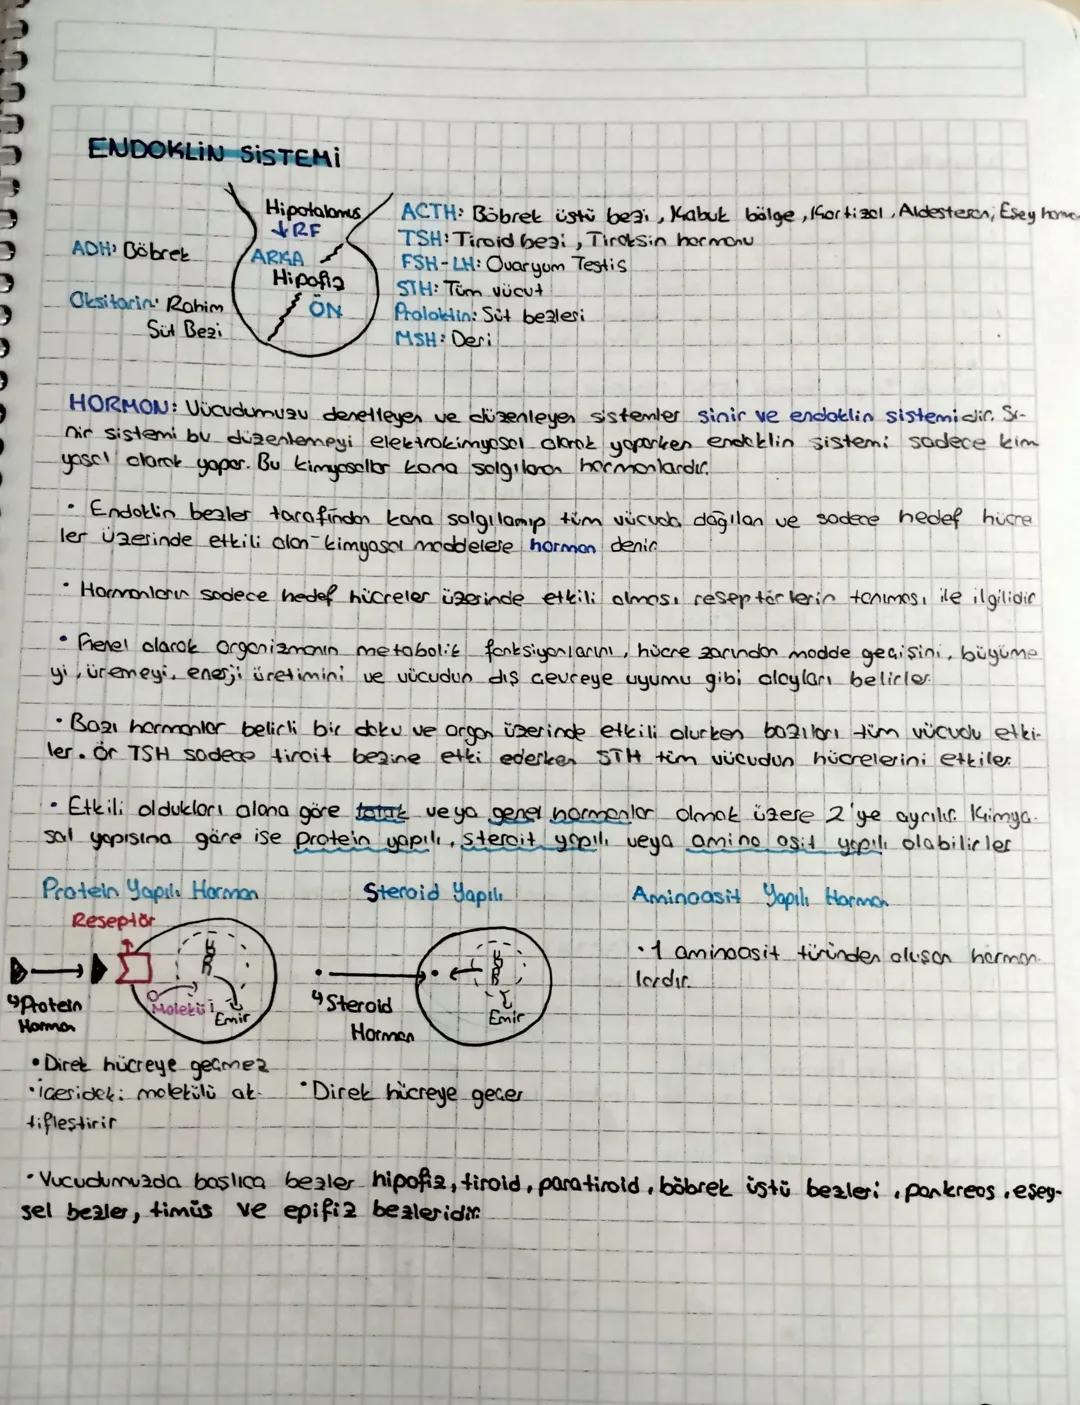 ENDOKLİN SİSTEMİ
Hipotalamus
↓RF
ARKA
Hipofiz
ÖN
ADH: Böbrek
Oksitosin: Rahim
Süt Bezi
ACTH: Böbrek üstü bezi, Kabuk bölge, Kortizol, Aldesteron, Esey
TSH: Tiroid bezi, Tiroksin hormonu
FSH-LH: Ovaryum Testis
STH: Tüm vücut
Prolaktin: Süt bezleri
MSH: Deri
HORMON: Vücudumuzu denetleyen ve düzenleyen sistemler sinir ve endoklin sistemidir. Si-
nir sistemi bu düzenlemeyi elektrokimyasal olarak yaparken endoklin sistemi sadece kim
yasal olarak yapar. Bu kimyasallar kana salgılanan hormonlardır.
• Endoklin bezler tarafından kana salgılanıp tüm vücuda dağılan ve sadece hedef hücre
ler üzerinde etkili olan kimyasal maddelere hormon denir.
• Hormonların sadece hedef hücreler üzerinde etkili olması reseptörlerin tanıması ile ilgilidir
• Genel olarak organizmanın metabolik fonksiyonlarını, hücre zarından madde geçişini, büyüme
yi, üremeyi, enerji üretimini ve vücudun dış çevreye uyumu gibi olayları belirler.
• Bazı hormonlar belirli bir doku ve organ üzerinde etkili olurken bazıları tüm vücudu etki-
ler. ör TSH sadece tiroit bezine etki ederken STH tüm vücudun hücrelerini etkiler
• Etkili oldukları alana göre veya genel hormonlar olmak üzere 2'ye ayrılır. Kimya-
sal yapısına göre ise protein yapılı, steroit yapılı veya amino asit yapılı olabilirler
Protein Yapılı Hormon
Steroid Yapılı
Aminoasit Yapılı Hormon
Reseptör
Protein
Hormon
Molekül
Emir
Steroid
Hormon
Emir
• 1 aminoasit türünden oluşan hormon-
lardır.
• Direk hücreye geçmez
• içerideki molekülü ak-
tifleştirir
• Direk hücreye geçer
• Vucudumuzda başlıca bezler hipofiz, tiroid, paratiroid, böbrek üstü bezleri, pankreas, eşey-
sel bezler, timüs ve epifiz bezleridir.